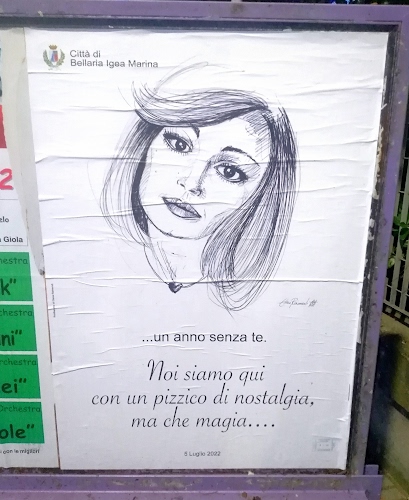 Città di
Bellaria Igea Marina
2
elo
Giola
chestra
k"
rchestra
ni"
rchestra
ei"
Orchestra
ole"
con le migliori
...un anno senza te.
Noi siamo qui
con un pizzico di nostalgia,
ma che magia....
5 Luglio 2022